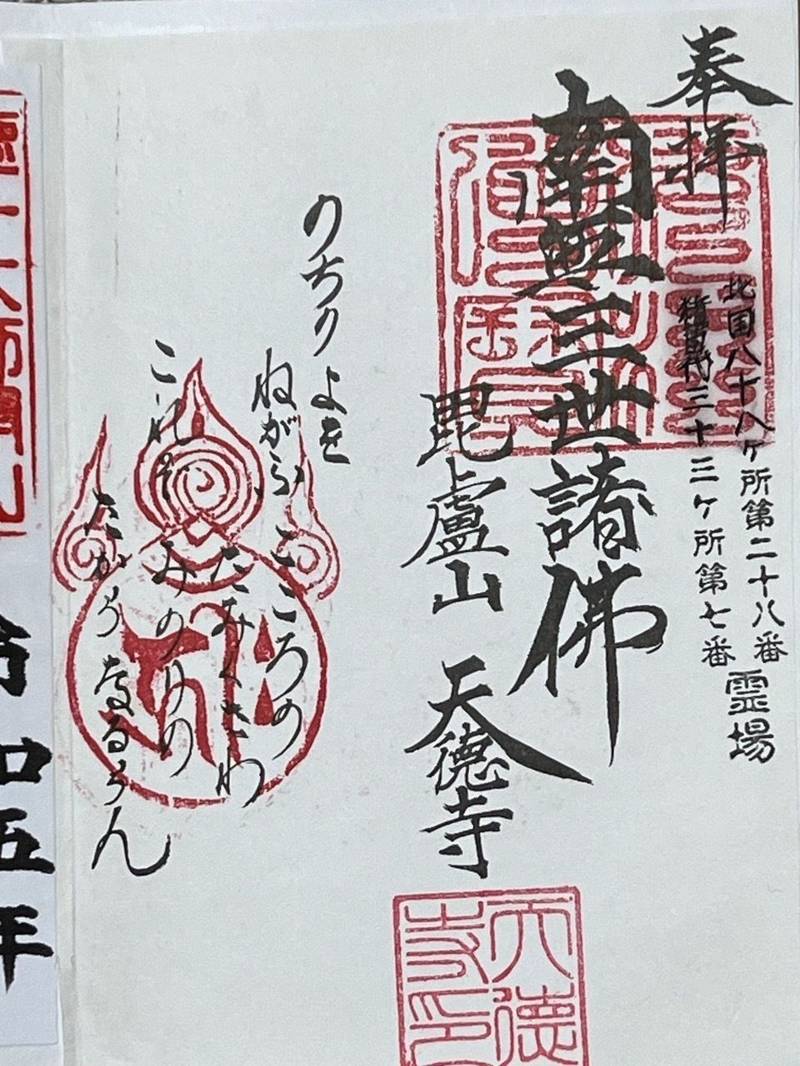 奉拝
北国八十八ヶ所第二十八番
三十三ヶ所第七番
霊場
南無三世諸佛
毘盧山 天徳寺
天徳寺印
のちのよを
ねがふこころの
たみくさわ
これぞみのりの
たから なるらん
令和五年